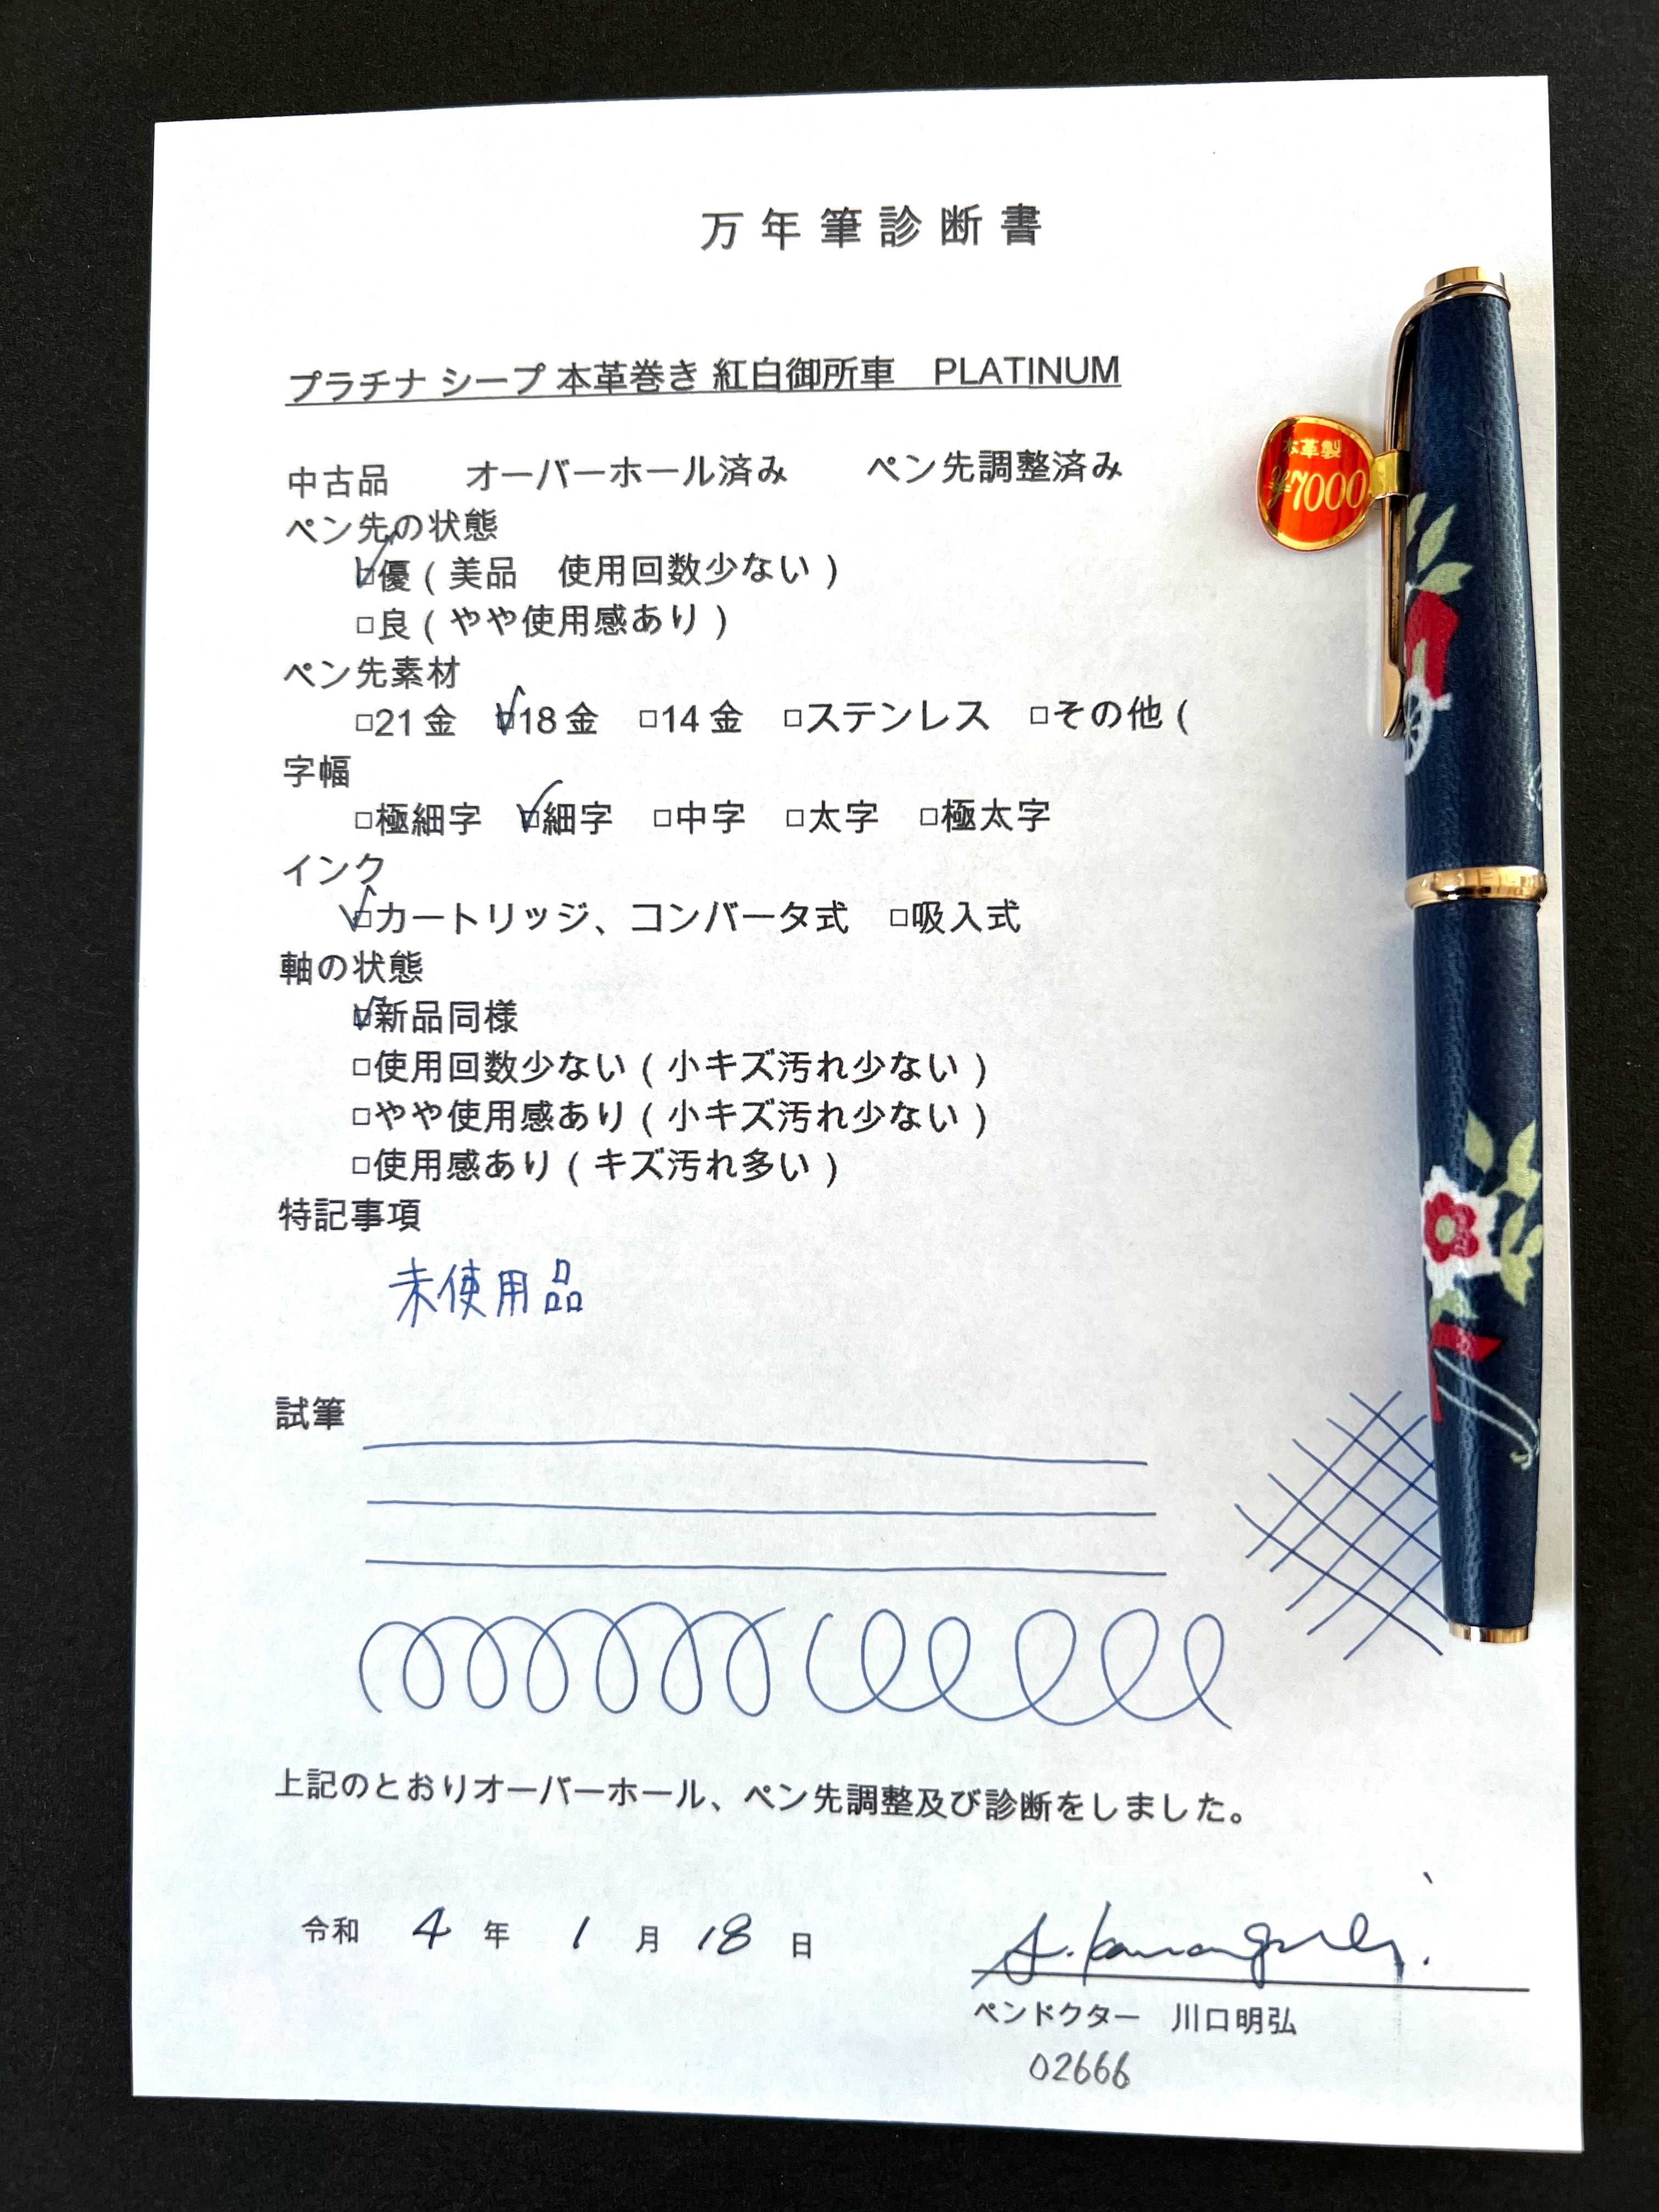 万年筆診断書
プラチナ シープ 本革巻き 紅白御所車　PLATINUM
本革製
¥7000
中古品　オーバーホール済み　ペン先調整済み
ペン先の状態
☑優（美品　使用回数少ない）
□良（やや使用感あり）
ペン先素材
□21金　☑18金　□14金　□ステンレス　□その他（
字幅
□極細字　☑細字　□中字　□太字　□極太字
インク
☑カートリッジ、コンバータ式　□吸入式
軸の状態
☑新品同様
□使用回数少ない（小キズ汚れ少ない）
□やや使用感あり（小キズ汚れ少ない）
□使用感あり（キズ汚れ多い）
特記事項
未使用品
試筆
上記のとおりオーバーホール、ペン先調整及び診断をしました。
令和 4 年 1 月 18 日
ペンドクター　川口明弘
02666